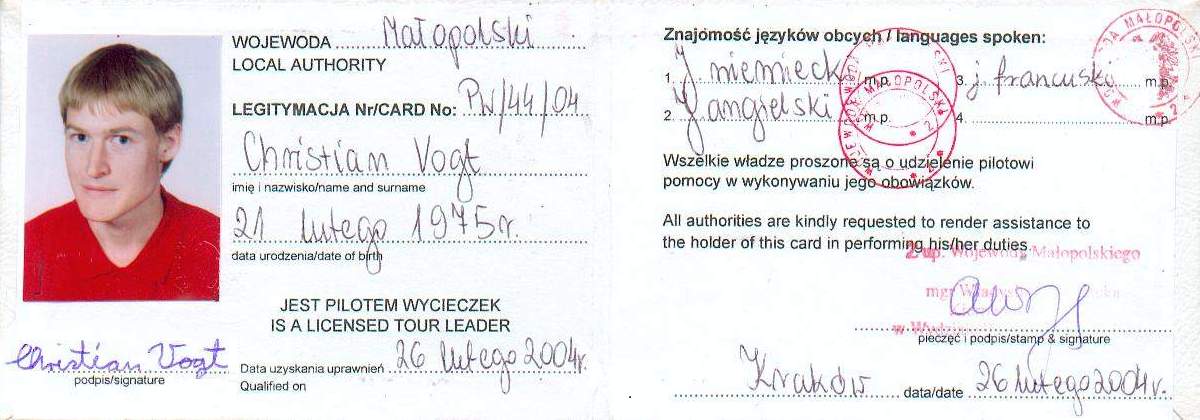 WOJEWODA Małopolski
LOCAL AUTHORITY
LEGITYMACJA Nr/CARD No: PW/44/04
Christian Vogt
imię i nazwisko/name and surname
21 lutego 1975r.
data urodzenia/date of birth
JEST PILOTEM WYCIECZEK
IS A LICENSED TOUR LEADER
Christian Vogt
podpis/signature
Data uzyskania uprawnień 26 lutego 2004r.
Qualified on
Znajomość języków obcych / languages spoken:
1. J niemiecki m.p. 3. j francuski m.p.
2. J angielski m.p. 4. m.p.
Wszelkie władze proszone są o udzielenie pilotowi
pomocy w wykonywaniu jego obowiązków.
All authorities are kindly requested to render assistance to
the holder of this card in performing his/her duties.
z up. Wojewody Małopolskiego
mgr
pieczęć i podpis/stamp & signature
Kraków data/date 26 lutego 2004r.